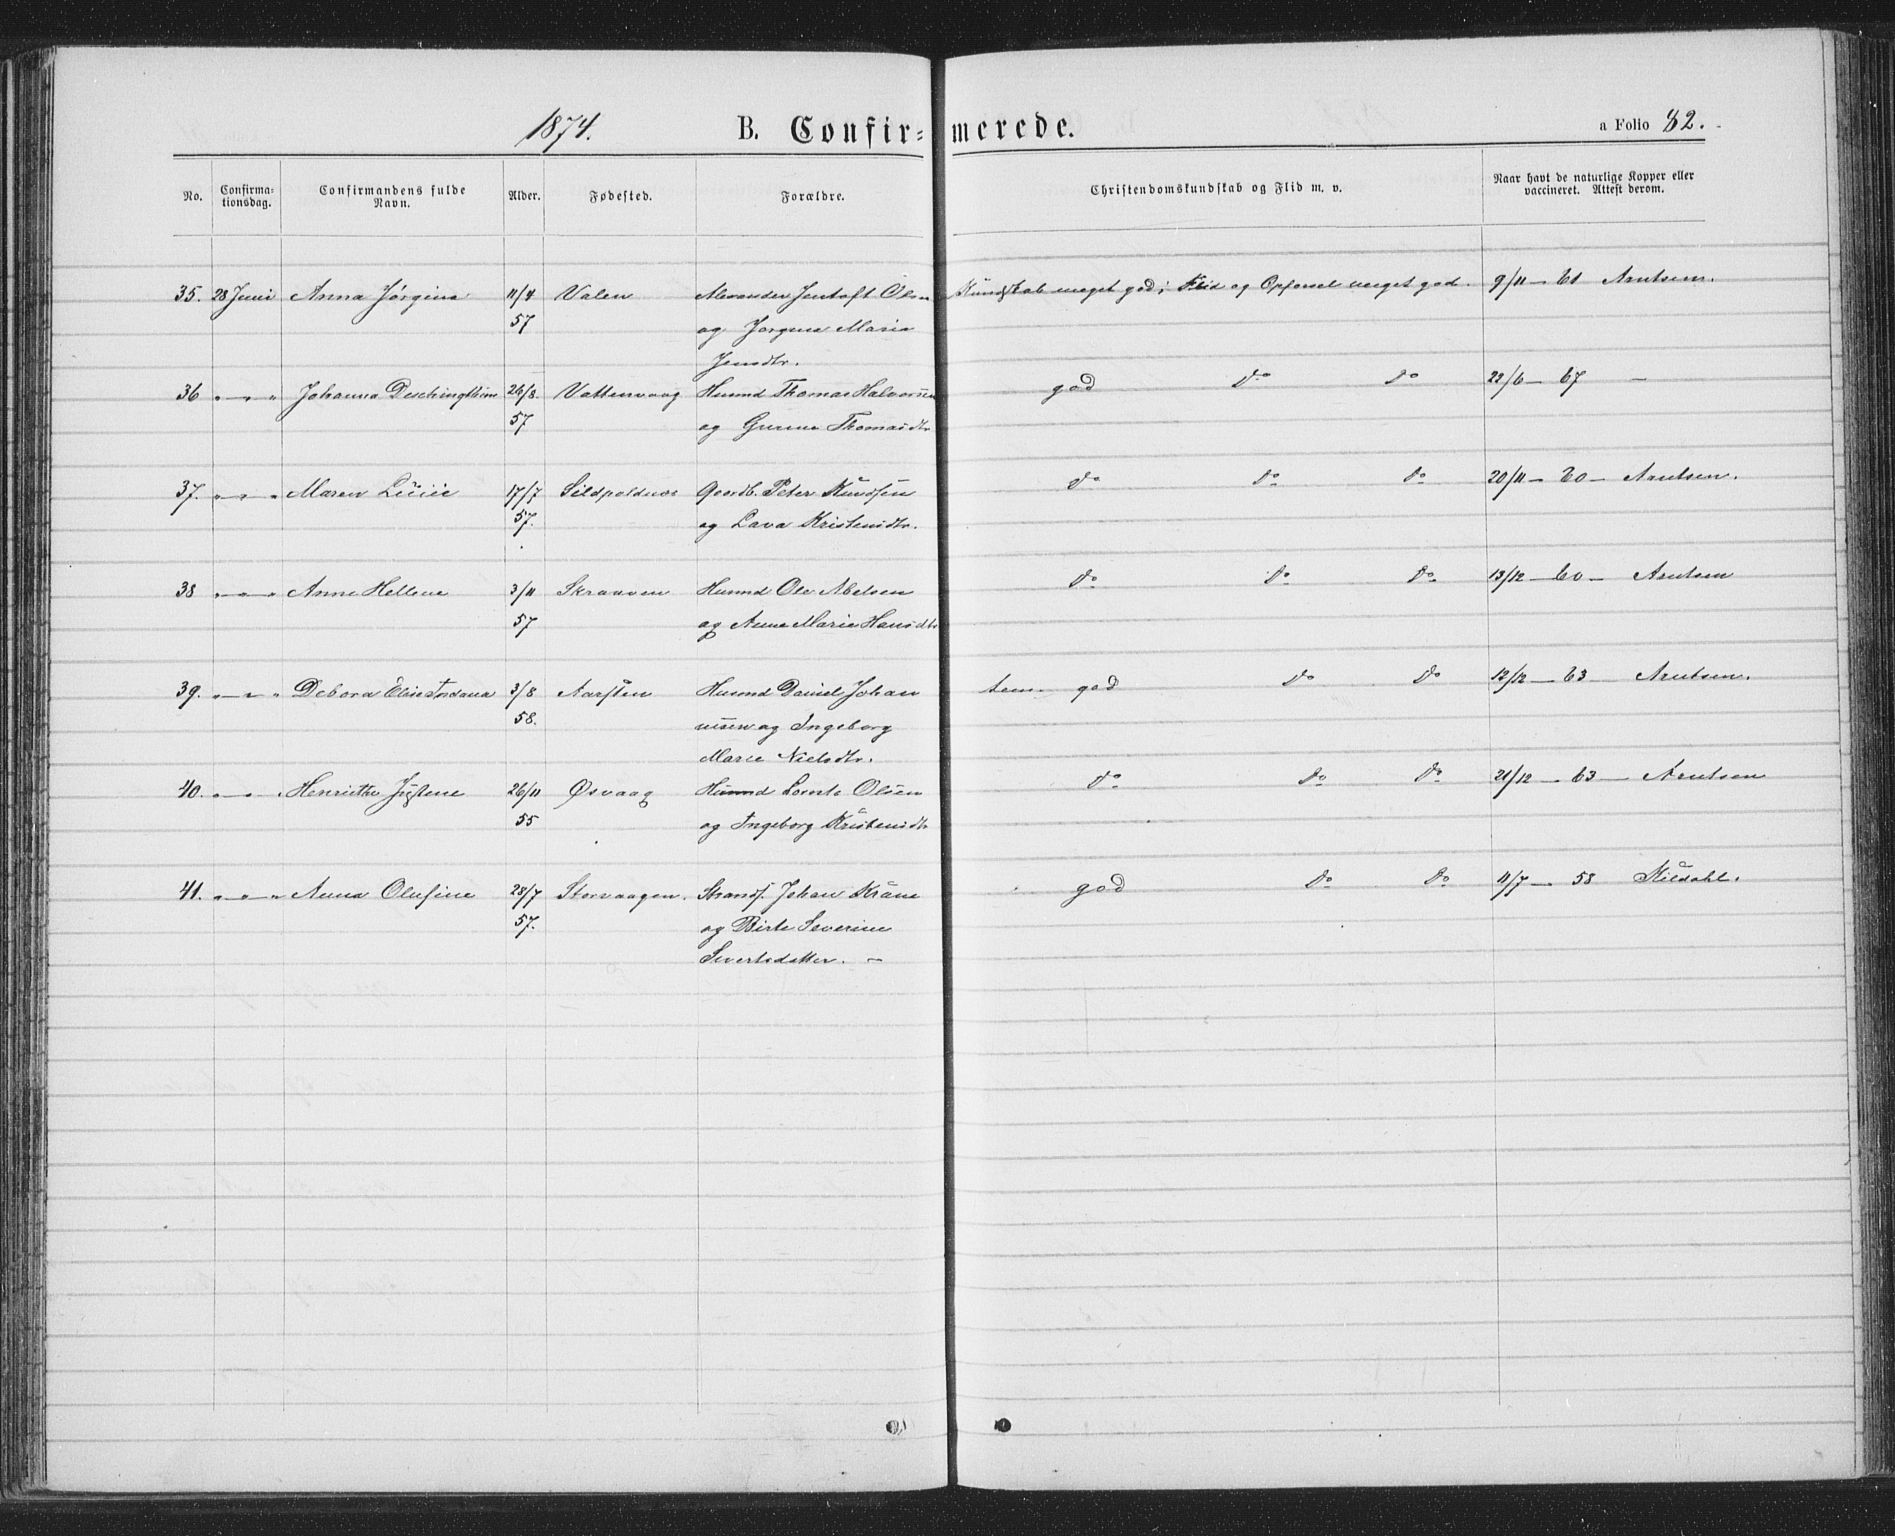 1874. B. Confir= merede. a Folio 82.
No. Confirma= tionsdag. Confirmandens fulde Navn. Alder. Fødested. Forældre. Christendomskundskab og Flid m. v. Naar havt de naturlige Kopper eller vaccineret. Attest derom.
35. 28 Juni Anna Jørgine 11/4 Valen Alexander Jentoft Olsen Kundskab meget god; Flid og Opførsel meget god. 9/11 - 61 Arntsen.
57 og Jørgine Marie
Jensdtr.
36 " - " - " Johanna 26/8 Vattenvaag Husmd Thomas Halvorsen god do do 22/6 - 67 -
57 og Gurine Thomasdtr
37. " - " - " Maren Lucie 17/7 Sildpoldnes Gaardb. Peter Knudsen do do do 20/11 - 60 - Arntsen.
57. og Lava Kristensdtr.
38 " - " - " Anne Hellene 3/11 Skraaven Husmd Ole Abelsen do do do 13/12 - 60 - Arntsen
57 og Anne Marie Hansdtr
39. " - " - " Debora Elise Jordana 3/8 Aarsten Husmd Daniel Johan tem. god do do 12/12 - 63 - Arntsen.
58. nesen og Ingeborg
Marie Nielsdtr.
40. " - " - " Henriette Justene 26/11 Øsvaag Husmd Lornts Olsen do do do 21/12 - 63 - Arntsen
55 og Ingeborg Kristensdtr
41. " - " - " Anna Olufine 28/7 Storvaagen. Strands. Johan Krane god do do 11/7 - 58 Kildahl.
57. og Birte Severine
Sivertsdatter. -